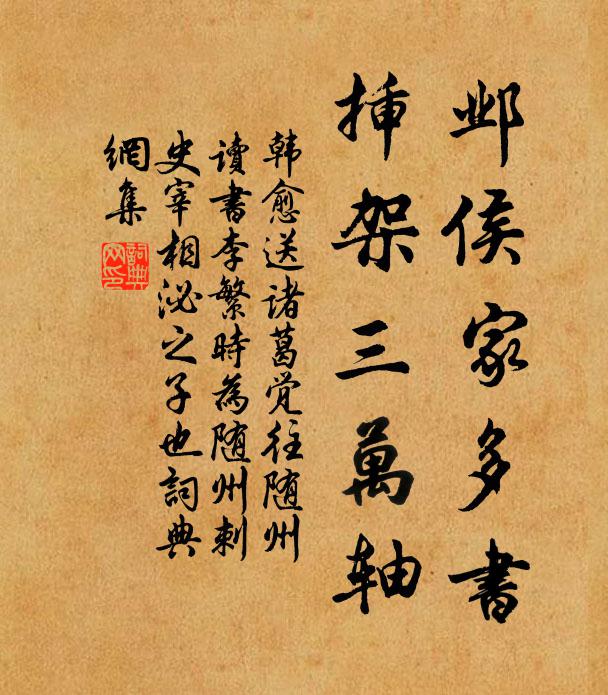 邺侯家多書
挿架三萬轴
韩愈送诸葛觉往随州
讀書李繁時為随州刺
史宰相泌之子也詞典
網集
詞典
网印